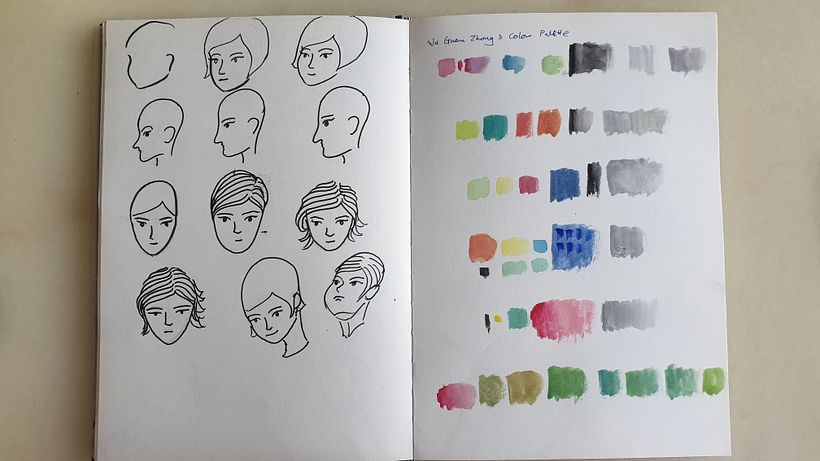 Wu Guan Zhong's Color Palette